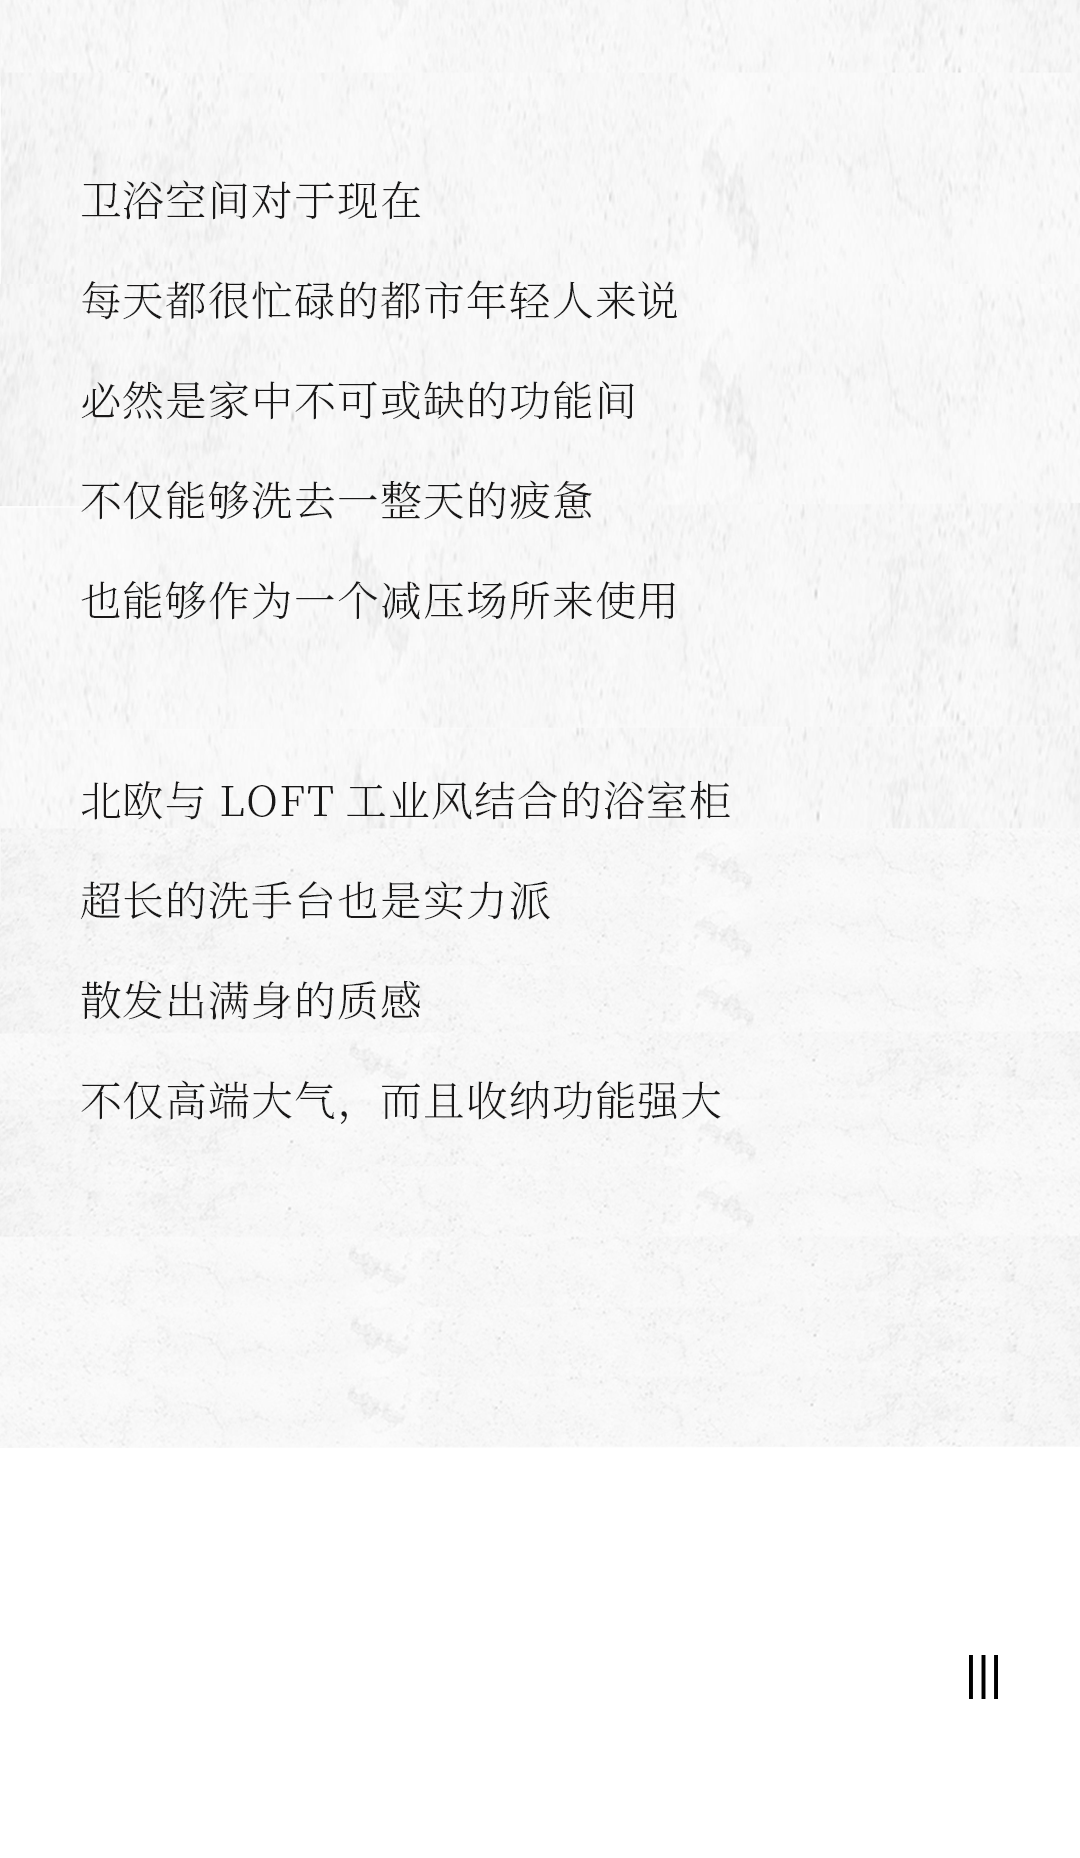 卫浴空间对于现在
每天都很忙碌的都市年轻人来说
必然是家中不可或缺的功能间
不仅能够洗去一整天的疲惫
也能够作为一个减压场所来使用
北欧与 LOFT 工业风结合的浴室柜
超长的洗手台也是实力派
散发出满身的质感
不仅高端大气，而且收纳功能强大